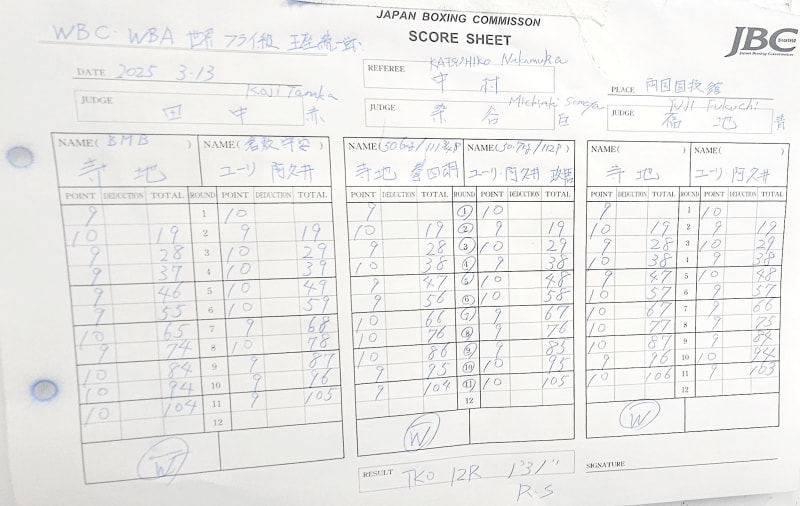 JAPAN BOXING COMMISSON
SCORE SHEET
JBC
WBC・WBA 世界 フライ級 王座統一戦
DATE 2025 3.13
REFEREE KATSUHIKO Nakamura
中村
PLACE 両国国技館
JUDGE Koji Tanaka
田中 赤
JUDGE
桑谷 白
JUDGE Yuji Fukuchi
福地 青
NAME( BMB )
寺地
NAME( 倉敷守安 )
ユーリ 阿久井
NAME(
寺地 拳四朗
NAME(
ユーリ・阿久井 政悟
NAME( )
寺地
NAME( )
ユーリ 阿久井
POINT DEDUCTION TOTAL ROUND POINT DEDUCTION TOTAL
POINT DEDUCTION TOTAL ROUND POINT DEDUCTION TOTAL
POINT DEDUCTION TOTAL ROUND POINT DEDUCTION TOTAL
9 1 10
10 19 2 9 19
9 28 3 10 29
9 37 4 10 39
9 46 5 10 49
9 55 6 10 59
10 65 7 9 68
9 74 8 10 78
10 84 9 9 87
10 94 10 9 96
10 104 11 9 105
12
W
9 1 10
10 19 2 9 19
9 28 3 10 29
10 38 4 9 38
9 47 5 10 48
9 56 6 10 58
10 66 7 9 67
10 76 8 9 76
10 86 9 9 85
9 95 10 10 95
9 104 11 10 105
12
W
9 1 10
10 19 2 9 19
9 28 3 10 29
10 38 4 9 38
9 47 5 10 48
10 57 6 9 57
10 67 7 9 66
10 77 8 9 75
10 87 9 9 84
9 96 10 10 94
10 106 11 9 103
12
W
RESULT TKO 12R 1'31"
R.S
SIGNATURE